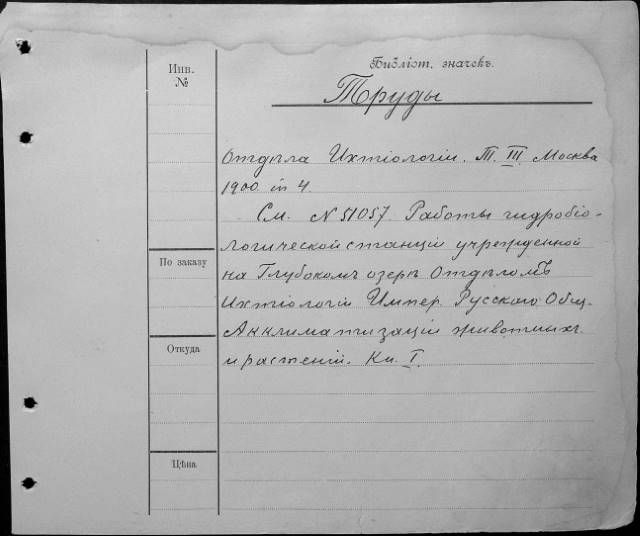 Инв.
№
Библіот. значекъ.
Труды
Отдѣла Ихтіологіи. Т. III. Москва
1900 in 4.
См. N 51057. Работы гидробіо-
логической станціи учрежденной
на Глубокомъ озерѣ Отдѣломъ
Ихтіологіи Импер. Русского Общ.
Акклиматизаціи животныхъ
и растеній. Кн. I.
По заказу
Откуда
Цѣна